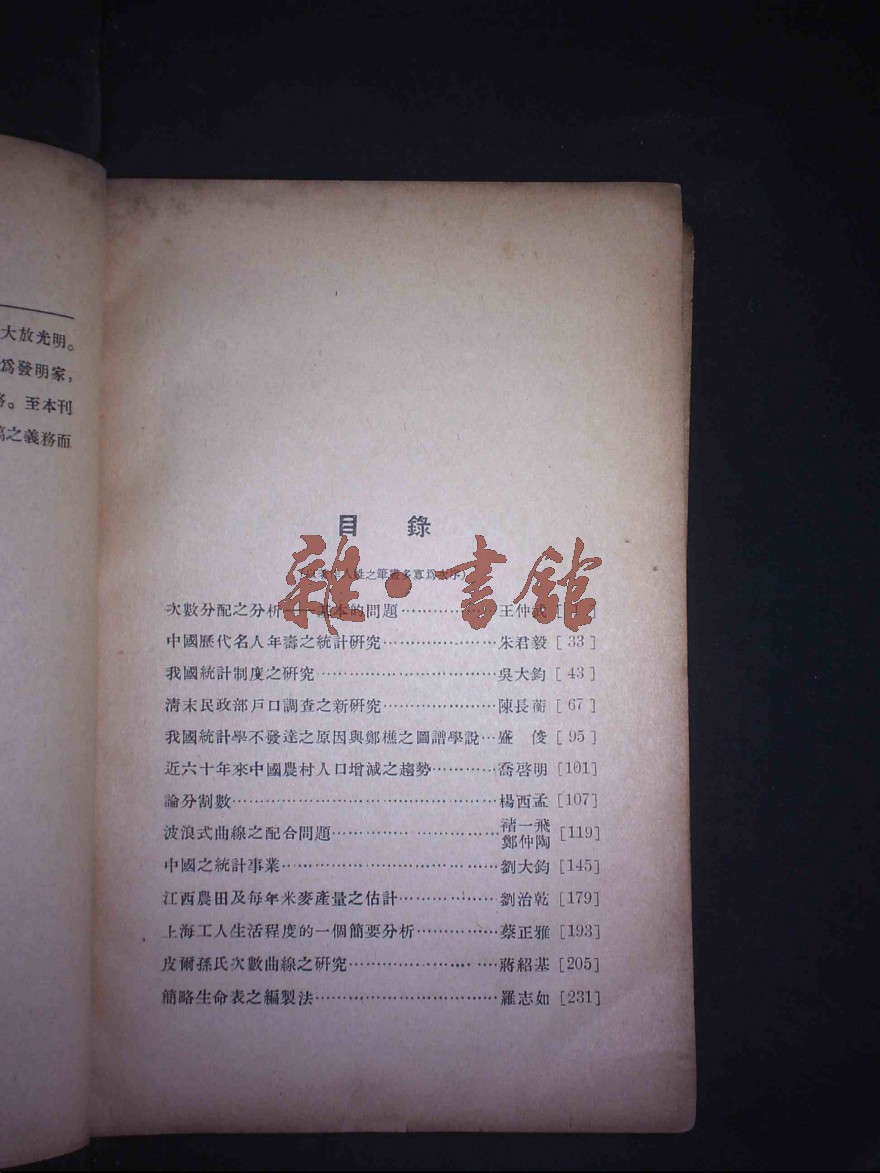 大放光明。
爲發明家，
。至本刊
之義務而
目錄
雜·書館
人姓之筆畫多寡爲次序)
次數分配之分析——基本的問題………………王仲武[1]
中國歷代名人年壽之統計研究…………………朱君毅[33]
我國統計制度之研究……………………………吳大鈞[43]
清末民政部戶口調查之新研究…………………陳長蘅[67]
我國統計學不發達之原因與鄭樵之圖譜學說…盛俊[95]
近六十年來中國農村人口增減之趨勢…………喬啓明[101]
論分割數…………………………………………楊西孟[107]
波浪式曲線之配合問題…………………………褚一飛 鄭仲陶[119]
中國之統計事業…………………………………劉大鈞[145]
江西農田及每年米麥產量之估計………………劉治乾[179]
上海工人生活程度的一個簡要分析……………蔡正雅[193]
皮爾孫氏次數曲線之研究………………………蔣紹基[205]
簡略生命表之編製法……………………………羅志如[231]